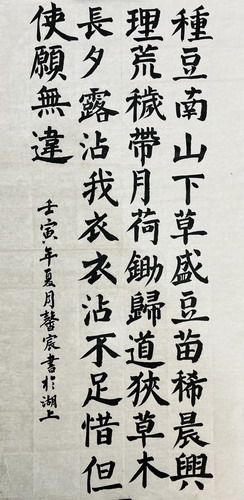 種豆南山下草盛豆苗稀晨興
理荒穢帶月荷鋤歸道狹草木
長夕露沾我衣衣沾不足惜但
使願無違
壬寅年夏月馨宸書於湖上